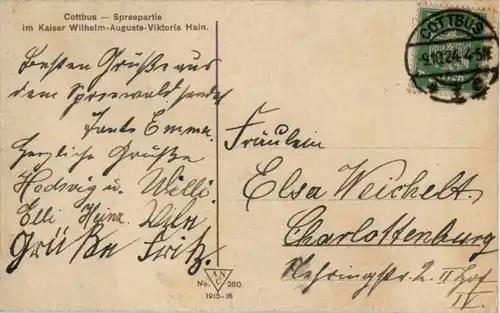 Cottbus — Spreepartie
im Kaiser Wilhelm-Auguste-Viktoria Hain.
COTTBUS
-9.10.24.4-5N.
Besten Grüße aus
dem Spreewald sendet
Tante Emma.
Herzliche Grüße
Hedwig u. Willi.
Elli Heinz
Grüße Fritz.
Fräulein
Elsa Weichelt.
Charlottenburg
Nehringstr. 2 II Hof
IV.
ANC
No. 280
1915-16